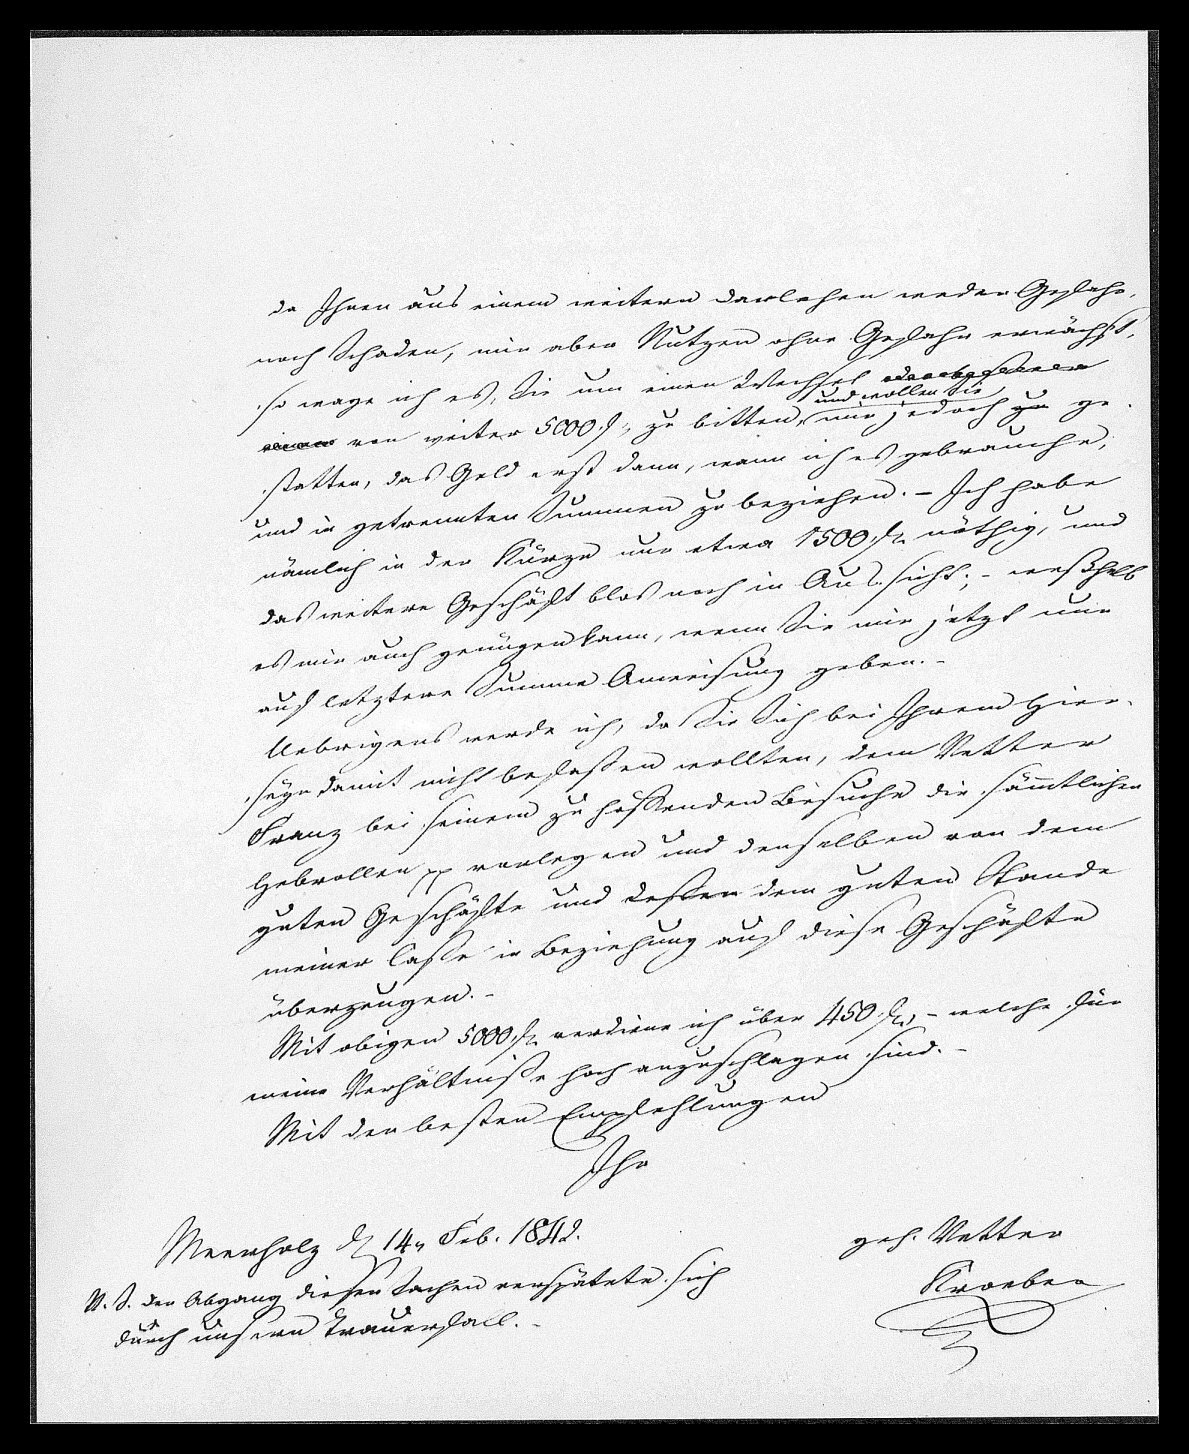 da Ihnen aus einem weitern Darlehen weder Gefahr,
noch Schaden, mir aber Nutzen ohne Gefahr erwächst,
so wage ich es, Sie um einen Wechsel
von weiter 5000 f, zu bitten, und wollen Sie mir jedoch zu ge-
statten, das Geld erst dann, wann ich es gebrauche,
und in getrennten Summen zu beziehen. – Ich habe
nämlich in der Kürze nur etwa 1500 f. nöthig, und
das weitere Geschäft blos noch in Aussicht; – weßhalb
es mir auch genügen kann, wenn Sie mir jetzt nur
auf letztere Summe Anweisung geben. –
Uebrigens werde ich, da Sie Sich bei Ihrem Hier-
seyn damit nicht befaßen wollten, dem Vetter
Franz bei seinem zu hoffenden Besuche die sämtlichen
Hebrollen pp vorlegen und denselben von dem
guten Geschäfte und deßen dem guten Stande
meiner Casse in Beziehung auf diese Geschäfte
überzeugen. –
Mit obigen 5000 f. verdiene ich über 450 f., – welche für
meine Verhältniße hoch anzuschlagen sind. –
Mit den besten Empfehlungen
Ihr
geh. Vetter
Kroeber
Meerholz d 14n Feb. 1842.
N. S. der Abgang dieser Sachen verspätete sich
durch unsern Trauerfall. –